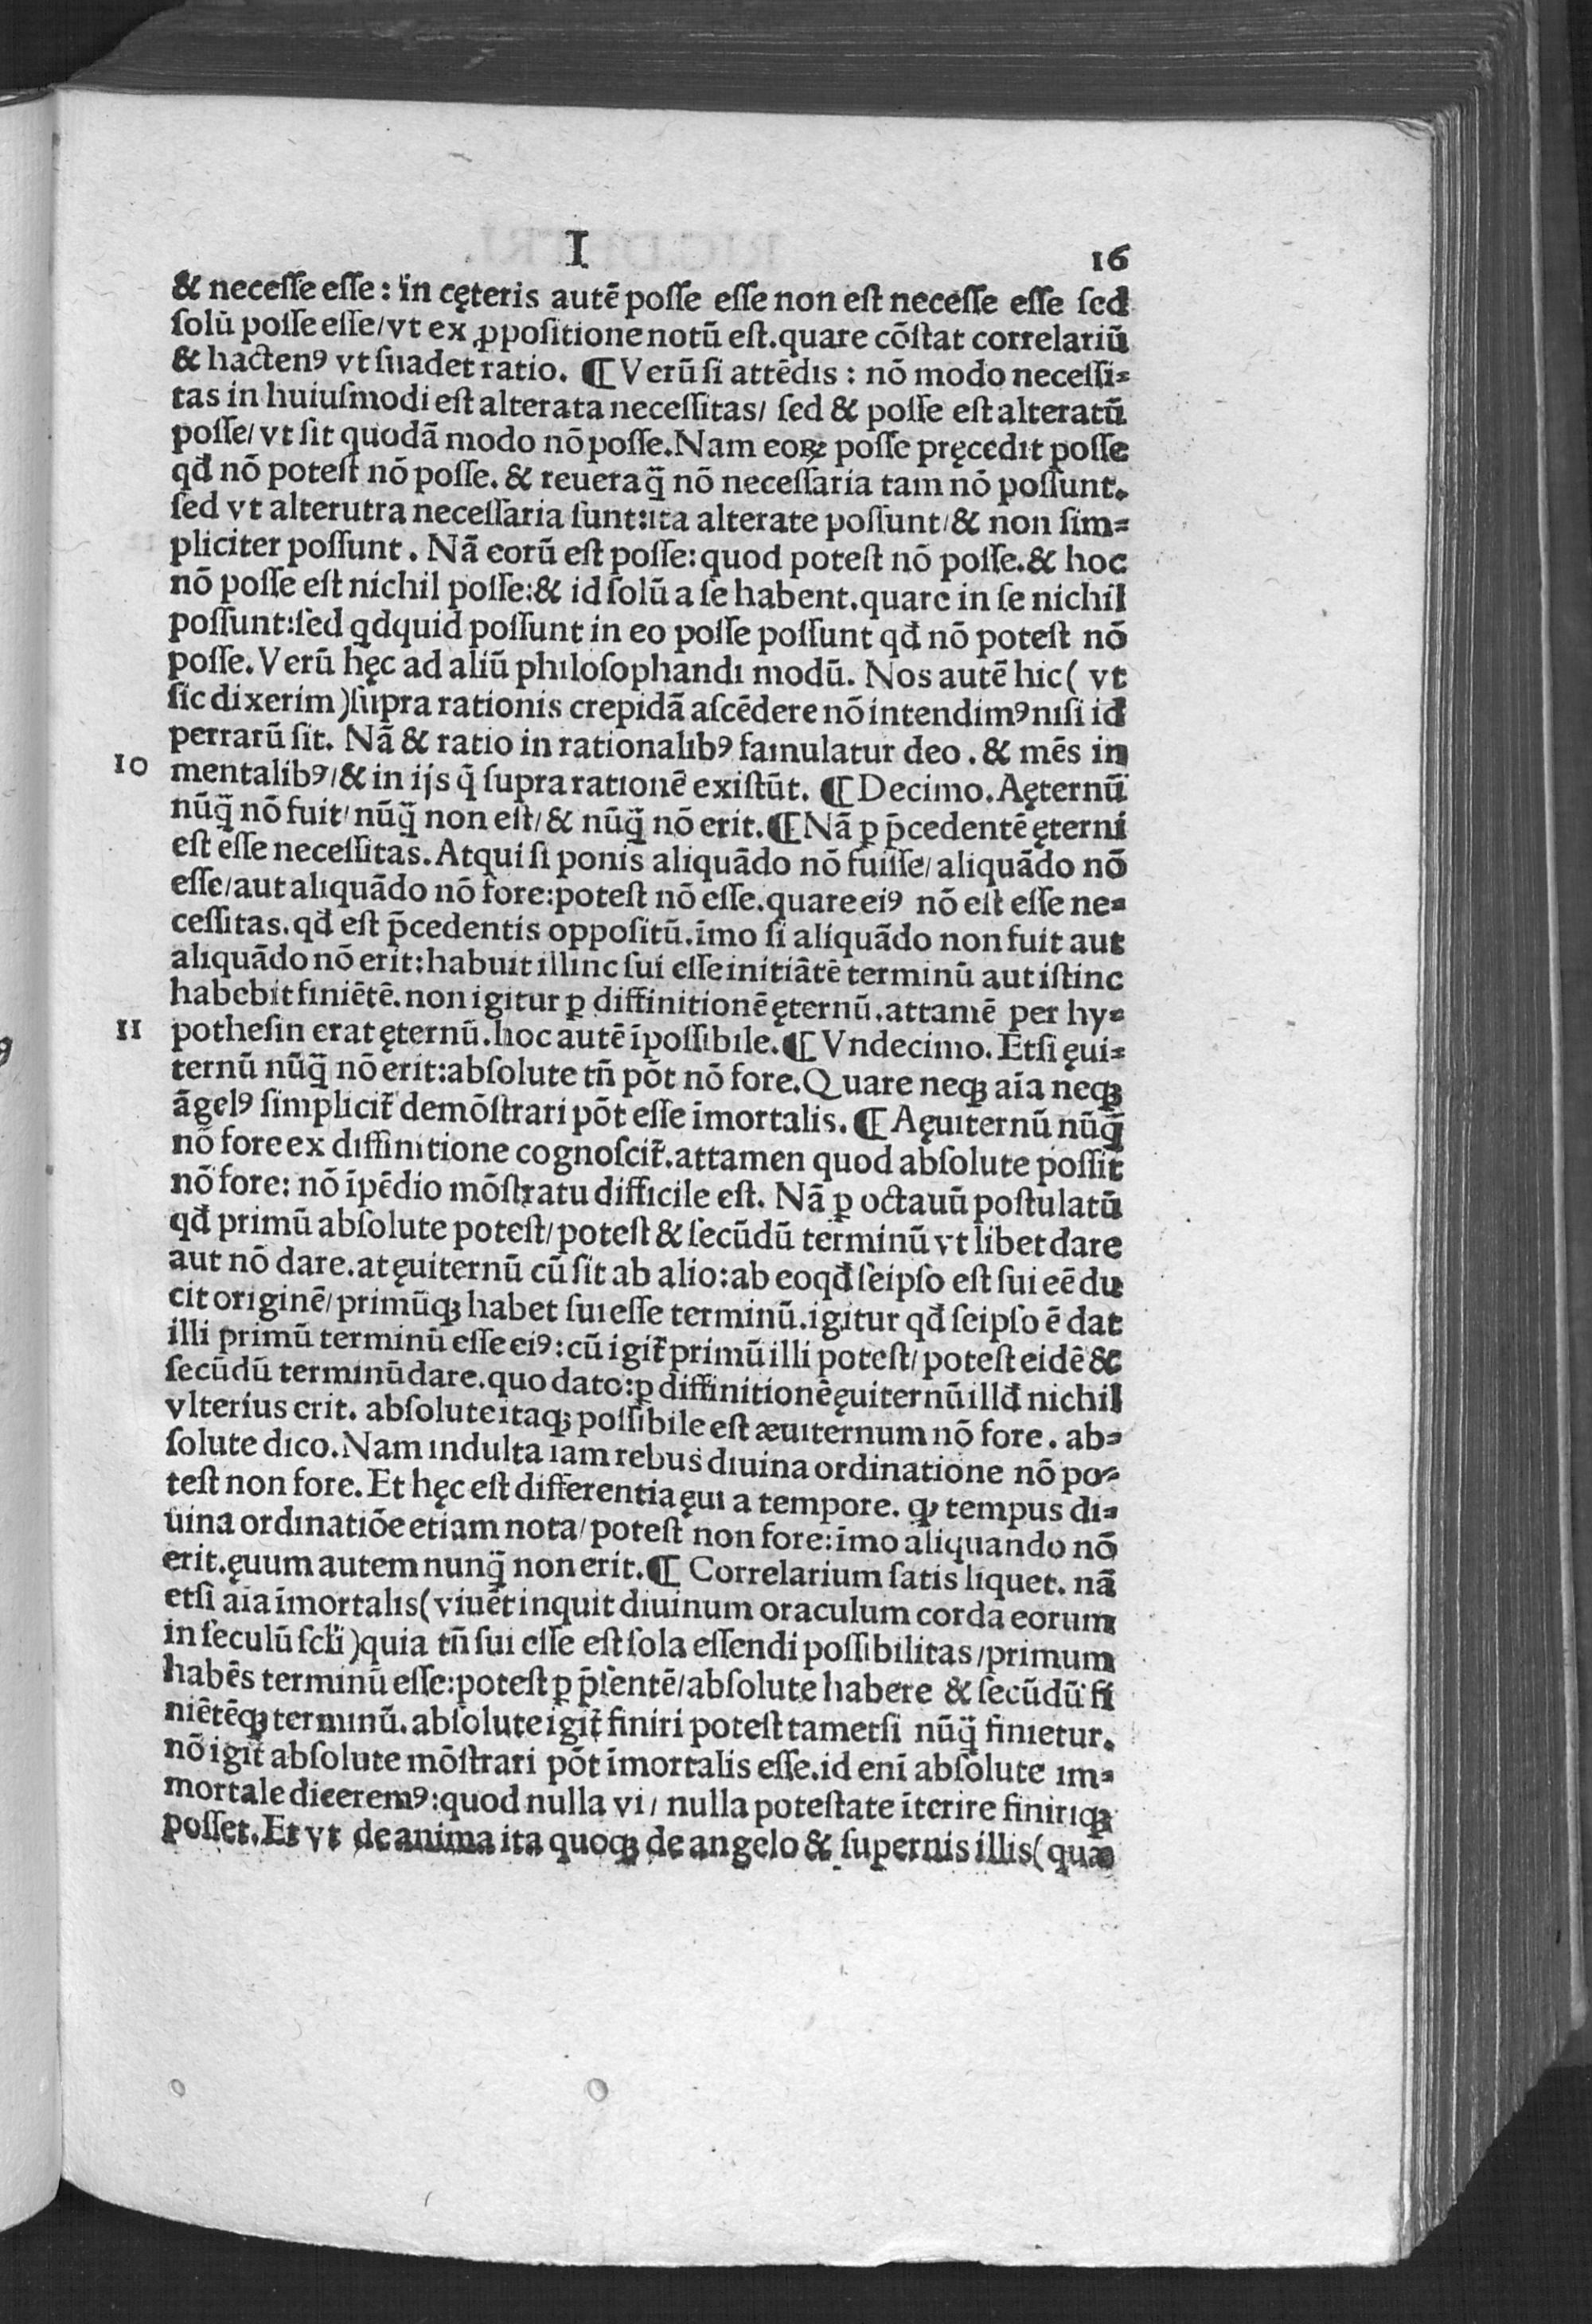 I
16
& necesse esse: in cęteris autē posse esse non est necesse esse sed
solū posse esse/vt ex ꝓpositione notū est.quare cōstat correlariū
& hacten⁹ vt suadet ratio. ¶ Verū si attēdis: nō modo necessi⸗
tas in huiusmodi est alterata necessitas/ sed & posse est alteratū
posse/vt sit quodā modo nō posse.Nam eoꝝ posse pręcedit posse
qđ nō potest nō posse. & reuera q̄ nō necessaria tam nō possunt.
sed vt alterutra necessaria sunt:ita alterate possunt/& non sim⸗
pliciter possunt. Nā eorū est posse:quod potest nō posse.& hoc
nō posse est nichil posse:& id solū a se habent.quare in se nichil
possunt:sed qdquid possunt in eo posse possunt qđ nō potest nō
posse.Verū hęc ad aliū philosophandi modū. Nos autē hic( vt
sic dixerim)supra rationis crepidā ascēdere nō intendim⁹nisi id
perrarū sit. Nā & ratio in rationalib⁹ famulatur deo.& mēs in
10 mentalib⁹/& in ijs q̄ supra rationē existūt. ¶ Decimo.Aęternū
nūq̄ nō fuit/nūq̄ non est/& nūq̄ nō erit.¶Nā ꝑ p̄cedentē ęterni
est esse necessitas.Atqui si ponis aliquādo nō fuisse/aliquādo nō
esse/aut aliquādo nō fore:potest nō esse.quare ei⁹ nō est esse ne⸗
cessitas.qđ est p̄cedentis oppositū.īmo si aliquādo non fuit aut
aliquādo nō erit:habuit illinc sui esse initiātē terminū aut istinc
habebit finiētē.non igitur ꝑ diffinitionē ęternū.attamē per hy⸗
11 pothesin erat ęternū.hoc autē īpossibile.¶ Vndecimo.Etsi ęui⸗
ternū nūq̄ nō erit:absolute tn̄ pōt nō fore.Quare neqꝫ aīa neqꝫ
āgel⁹ simplicit̄ demōstrari pōt esse īmortalis.¶ Aęuiternū nūq̄
nō fore ex diffinitione cognoscit̄.attamen quod absolute possit
nō fore: nō īpēdio mōstratu difficile est. Nā ꝑ octauū postulatū
qđ primū absolute potest/potest & secūdū terminū vt libet dare
aut nō dare.at ęuiternū cū sit ab alio:ab eo qđ seipso est sui eē du
cit originē/primūqꝫ habet sui esse terminū.igitur qđ seipso ē dat
illi primū terminū esse ei⁹:cū igit̄ primū illi potest/potest eidē &
secūdū terminū dare.quo dato:ꝑ diffinitionē ęuiternū illđ nichil
vlterius erit. absolute itaqꝫ possibile est æuiternum nō fore. ab⸗
solute dico.Nam indulta iam rebus diuina ordinatione nō po⸗
test non fore.Et hęc est differentia ęui a tempore. ꝙ tempus di⸗
uina ordinatiōe etiam nota/potest non fore:īmo aliquando nō
erit.ęuum autem nunq̄ non erit.¶ Correlarium satis liquet. nā
etsi aīa īmortalis(viuēt inquit diuinum oraculum corda eorum
in seculū scl̄i)quia tn̄ sui esse est sola essendi possibilitas/primum
habēs terminū esse:potest ꝑ p̄sentē/absolute habere & secūdū fi
niētēqꝫ terminū.absolute igit̄ finiri potest tametsi nūq̄ finietur.
nō igit̄ absolute mōstrari pōt īmortalis esse.id enī absolute im⸗
mortale dicerem⁹:quod nulla vi/ nulla potestate īterire finiriqꝫ
posset.Et vt de anima ita quoqꝫ de angelo & supernis illis(quæ